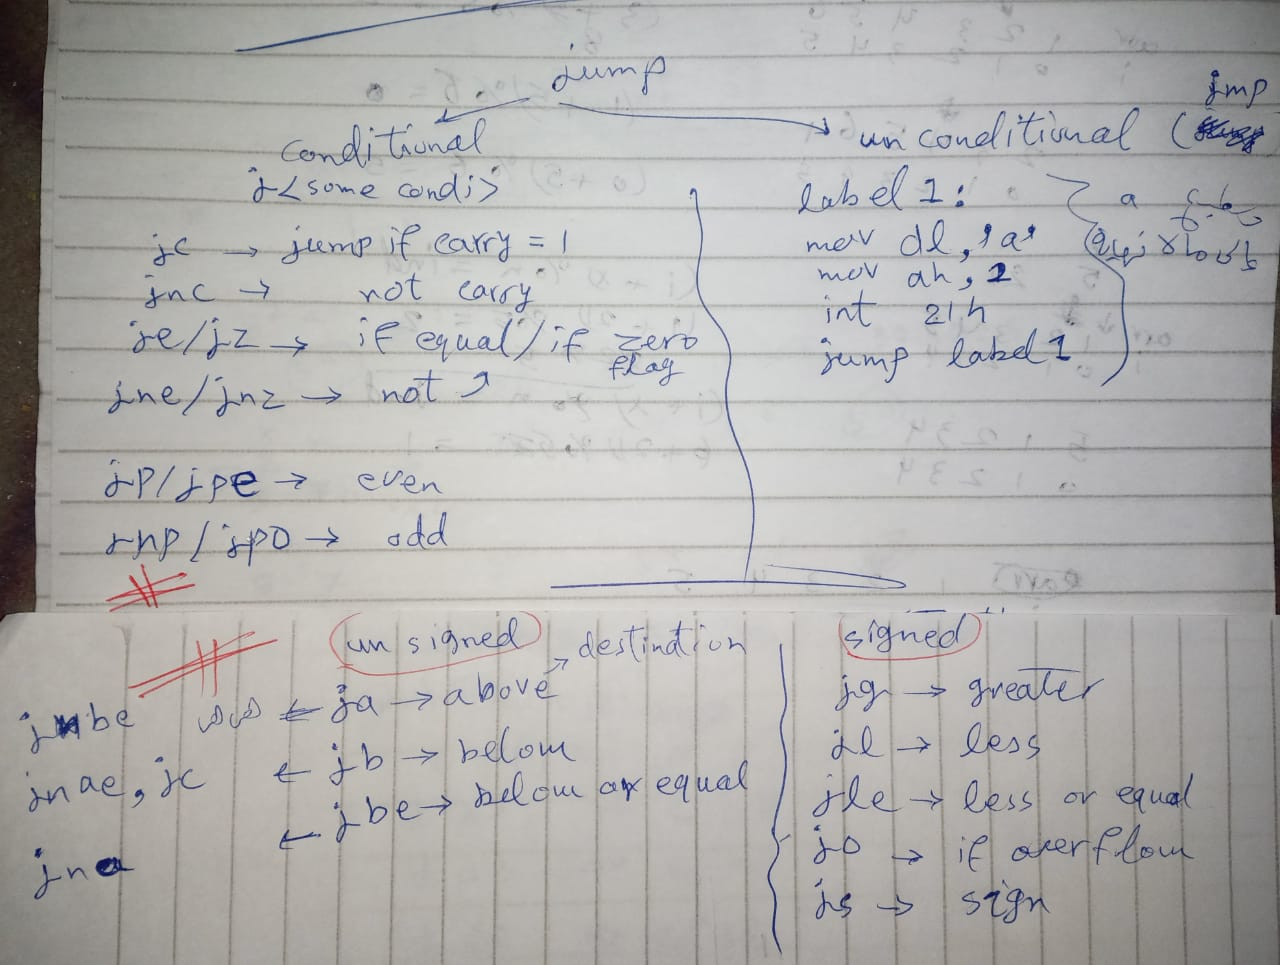 jump
conditional
j<some condi>
jc → jump if carry = 1
jnc → not carry
je/jz → if equal/if zero flag
jne/jnz → not
jp/jpe → even
jnp/jpo → odd
unconditional (jmp
label 1:
mov dl, 'a'
mov ah, 2
int 21h
jump label 1
a
unsigned
destination
jnbe ← ja → above
jnae, jc ← jb → below
jna ← jbe → below or equal
signed
jg → greater
jl → less
jle → less or equal
jo → if overflow
js → sign